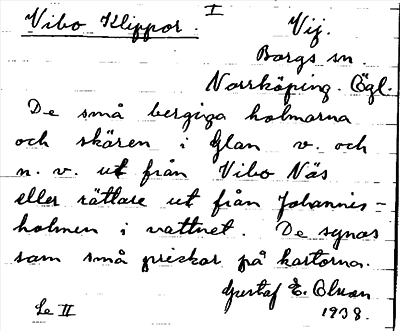 Vibo Klippor. I Vij.
Borgs sn.
Norrköping. Ögl.
De små bergiga holmarna
och skären i Glan v. och
n. v. ut från Vibo Näs
eller rättare ut från Johannis-
holmen i vattnet. De synas
som små prickar på kartorna.
Gustaf E.
1938.
Se II